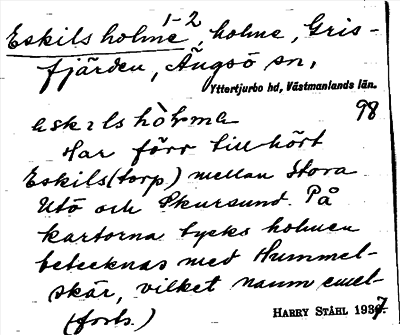 Eskils holme 1-2, holme, Gris-
fjärden, Ängsö sn,
Yttertjurbo hd, Västmanlands län.
98
Har förr tillhört
Eskils(torp) mellan Stora
Utö och Skursund. På
kartorna tycks holmen
betecknas med Hummel-
skär, vilket namn emel-
(forts.)
HARRY STÅHL 1937.